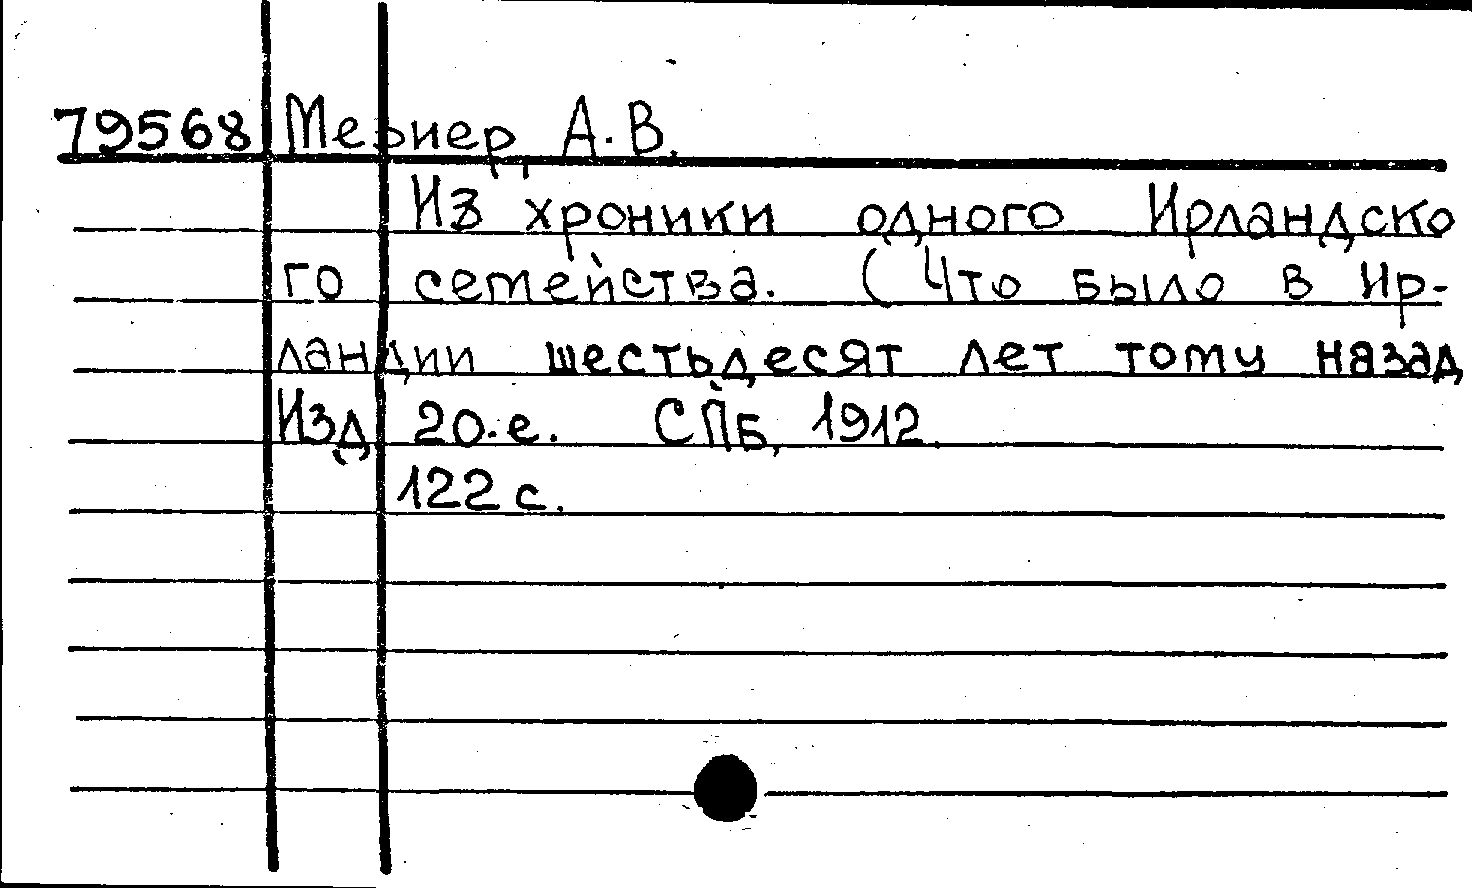 79568 Мезиер, А. В.
Из хроники одного Ирландско
го семейства. (Что было в Ир-
ландии шестьдесят лет тому назад
Изд 20-е. СПБ, 1912.
122 с.